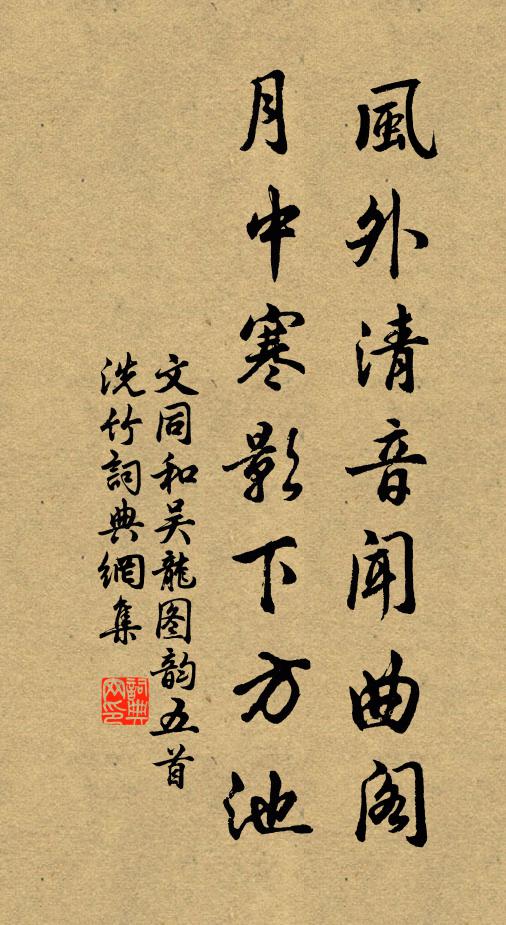 風外清音闻曲阁
月中寒影下方池
文同和吴龍图韵五首
洗竹詞典網集
詞典网印